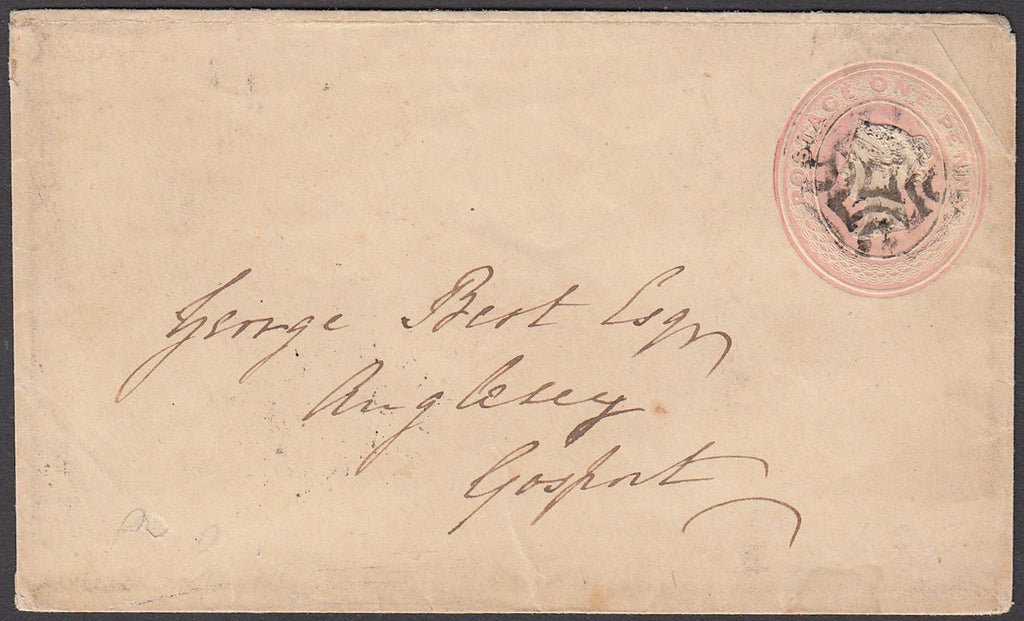 POSTAGE ONE PENNY
George Best Esqr
Anglesey
Gosport